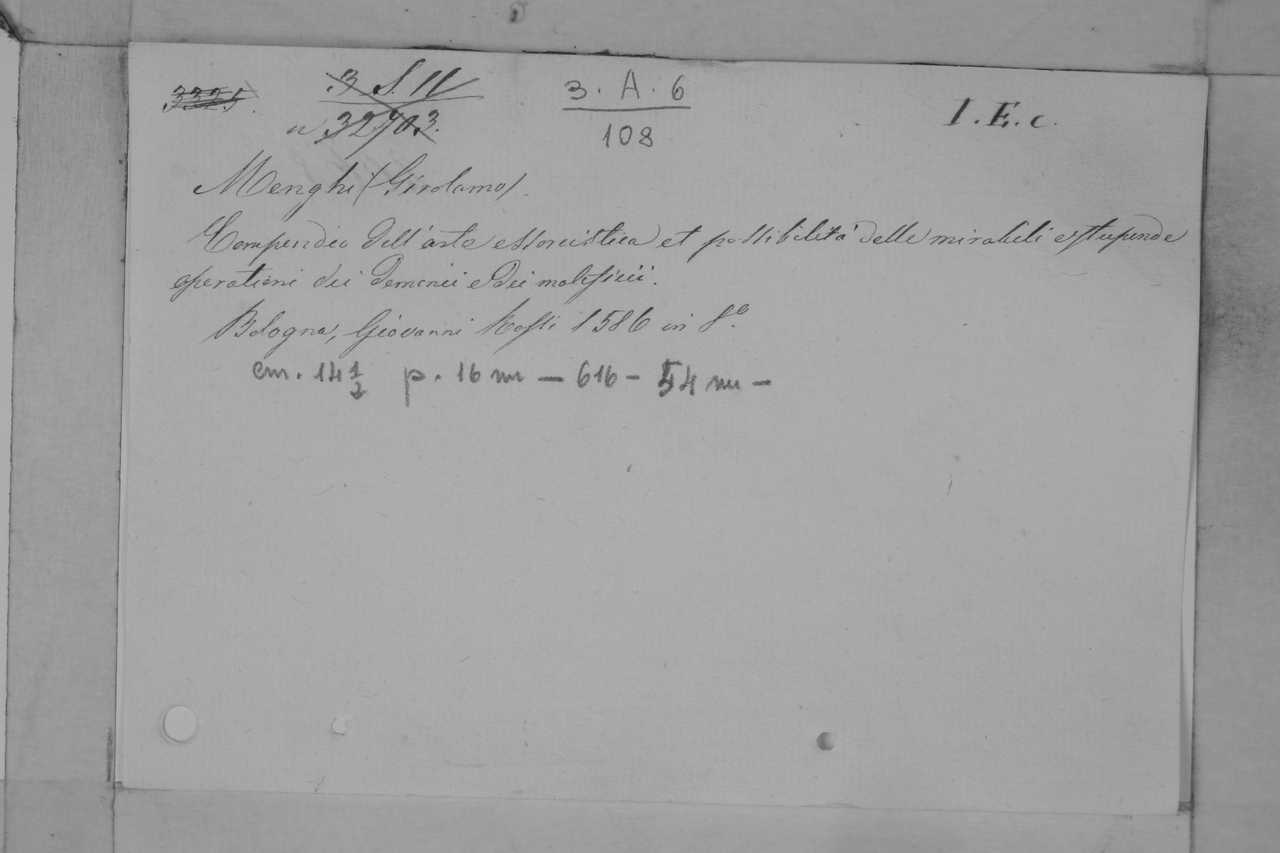 3325. 3 S. 11 3. A. 6 I. E. c.
n 32703. 108
Menghi (Girolamo).
Compendio dell'arte essorcistica et possibilità delle mirabili e stupende
operationi dei demonii e dei maleficii.
Bologna, Giovanni Rossi 1586 in 8.º
cm. 14 1/2 p. 16 nn — 616 — 54 nn —